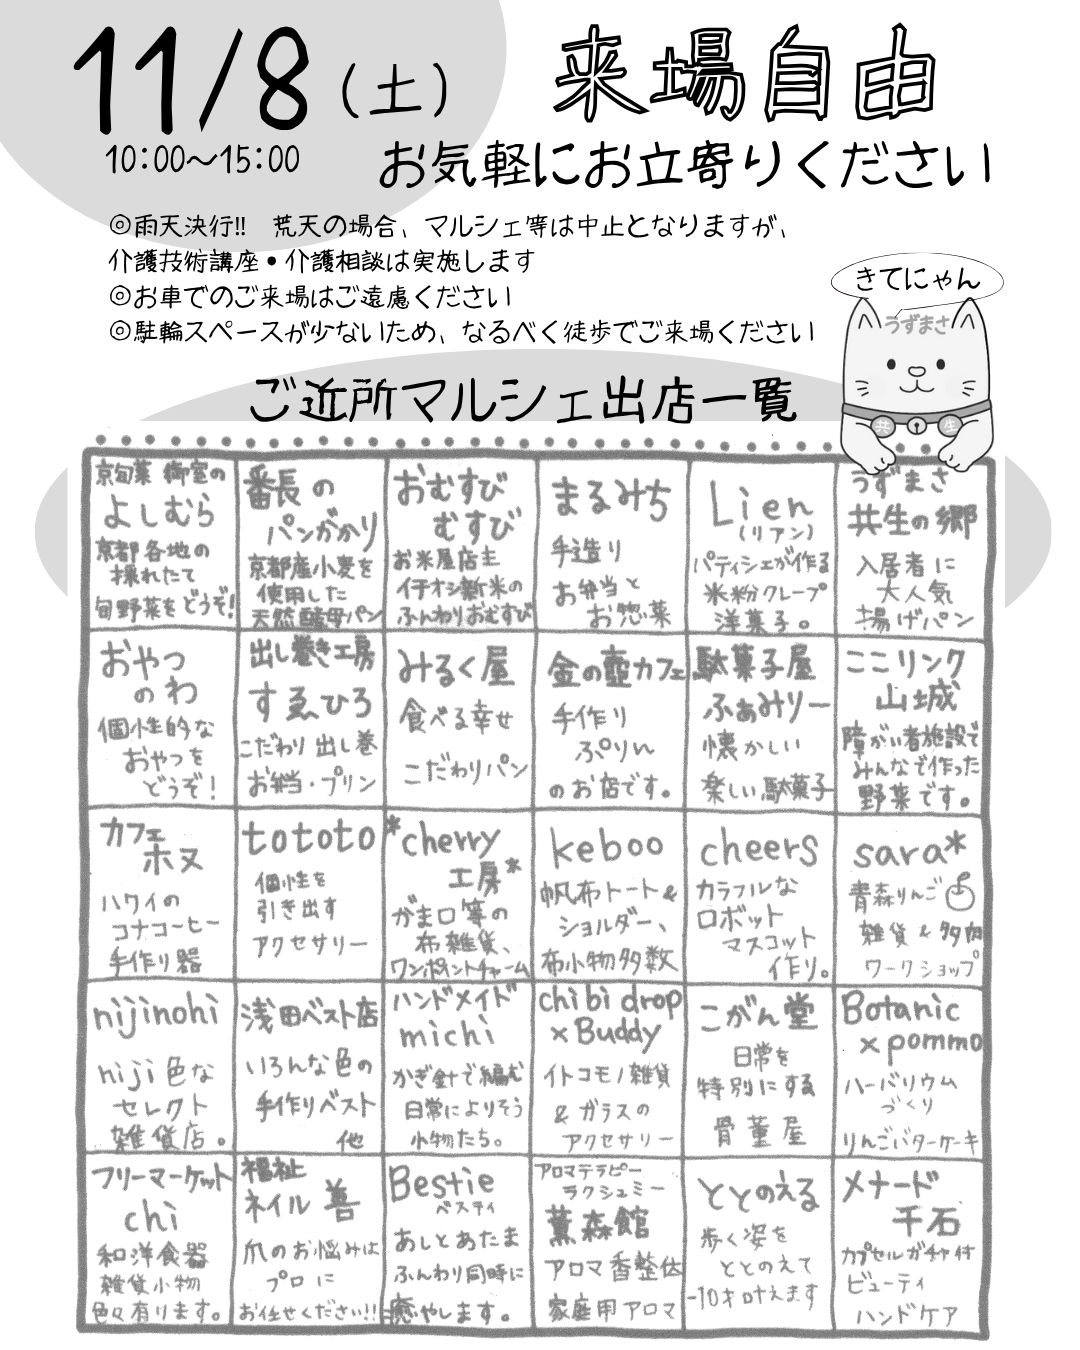 11/8(土)
10:00〜15:00
来場自由
お気軽にお立寄りください
◎雨天決行!! 荒天の場合、マルシェ等は中止となりますが、
介護技術講座・介護相談は実施します
◎お車でのご来場はご遠慮ください
◎駐輪スペースが少ないため、なるべく徒歩でご来場ください
きてにゃん
うずまさ
共
生
ご近所マルシェ出店一覧
京旬菜 御室の
よしむら
京都各地の
採れたて
旬野菜をどうぞ!
番長の
パンがかり
京都産小麦を
使用した
天然酵母パン
おむすび
むすび
お米屋店主
イチオシ新米の
ふんわりおむすび
まるみち
手造り
お弁当と
お惣菜
Lien
(リアン)
パティシエが作る
米粉クレープ
洋菓子。
うずまさ
共生の郷
入居者に
大人気
揚げパン
おやつ
のわ
個性的な
おやつを
どうぞ!
出し巻き工房
すゑひろ
こだわり出し巻
お弁当・プリン
みるく屋
食べる幸せ
こだわりパン
金の壺カフェ
手作り
ぷりん
のお店です。
駄菓子屋
ふぁみりー
懐かしい
楽しい駄菓子
ここリンク
山城
障がい者施設で
みんなで作った
野菜です。
カフェ
ホヌ
ハワイの
コナコーヒー
手作り器
tototo
個性を
引き出す
アクセサリー
*cherry
工房*
がま口等の
布雑貨、
ワンポイントチャーム
keboo
帆布トート&
ショルダー、
布小物多数
cheers
カラフルな
ロボット
マスコット
作り。
sara*
青森りんご
雑貨&多肉
ワークショップ
nijinohi
niji色な
セレクト
雑貨店。
浅田ベスト店
いろんな色の
手作りベスト
他
ハンドメイド
michi
かぎ針で編む
日常によりそう
小物たち。
chibi drop
×Buddy
イトコモノ雑貨
&ガラスの
アクセサリー
こがん堂
日常を
特別にする
骨董屋
Botanic
×pommo
ハーバリウム
づくり
りんごバターケーキ
フリーマーケット
chi
和洋食器
雑貨小物
色々有ります。
福祉
ネイル 善
爪のお悩みは
プロに
お任せください!!
Bestie
ベスティ
あしとあたま
ふんわり同時に
癒やします。
アロマテラピー
ラクシュミー
薫森館
アロマ香整体
家庭用アロマ
ととのえる
歩く姿を
ととのえて
-10キロ叶えます
メナード
千石
カプセルガチャ付
ビューティ
ハンドケア